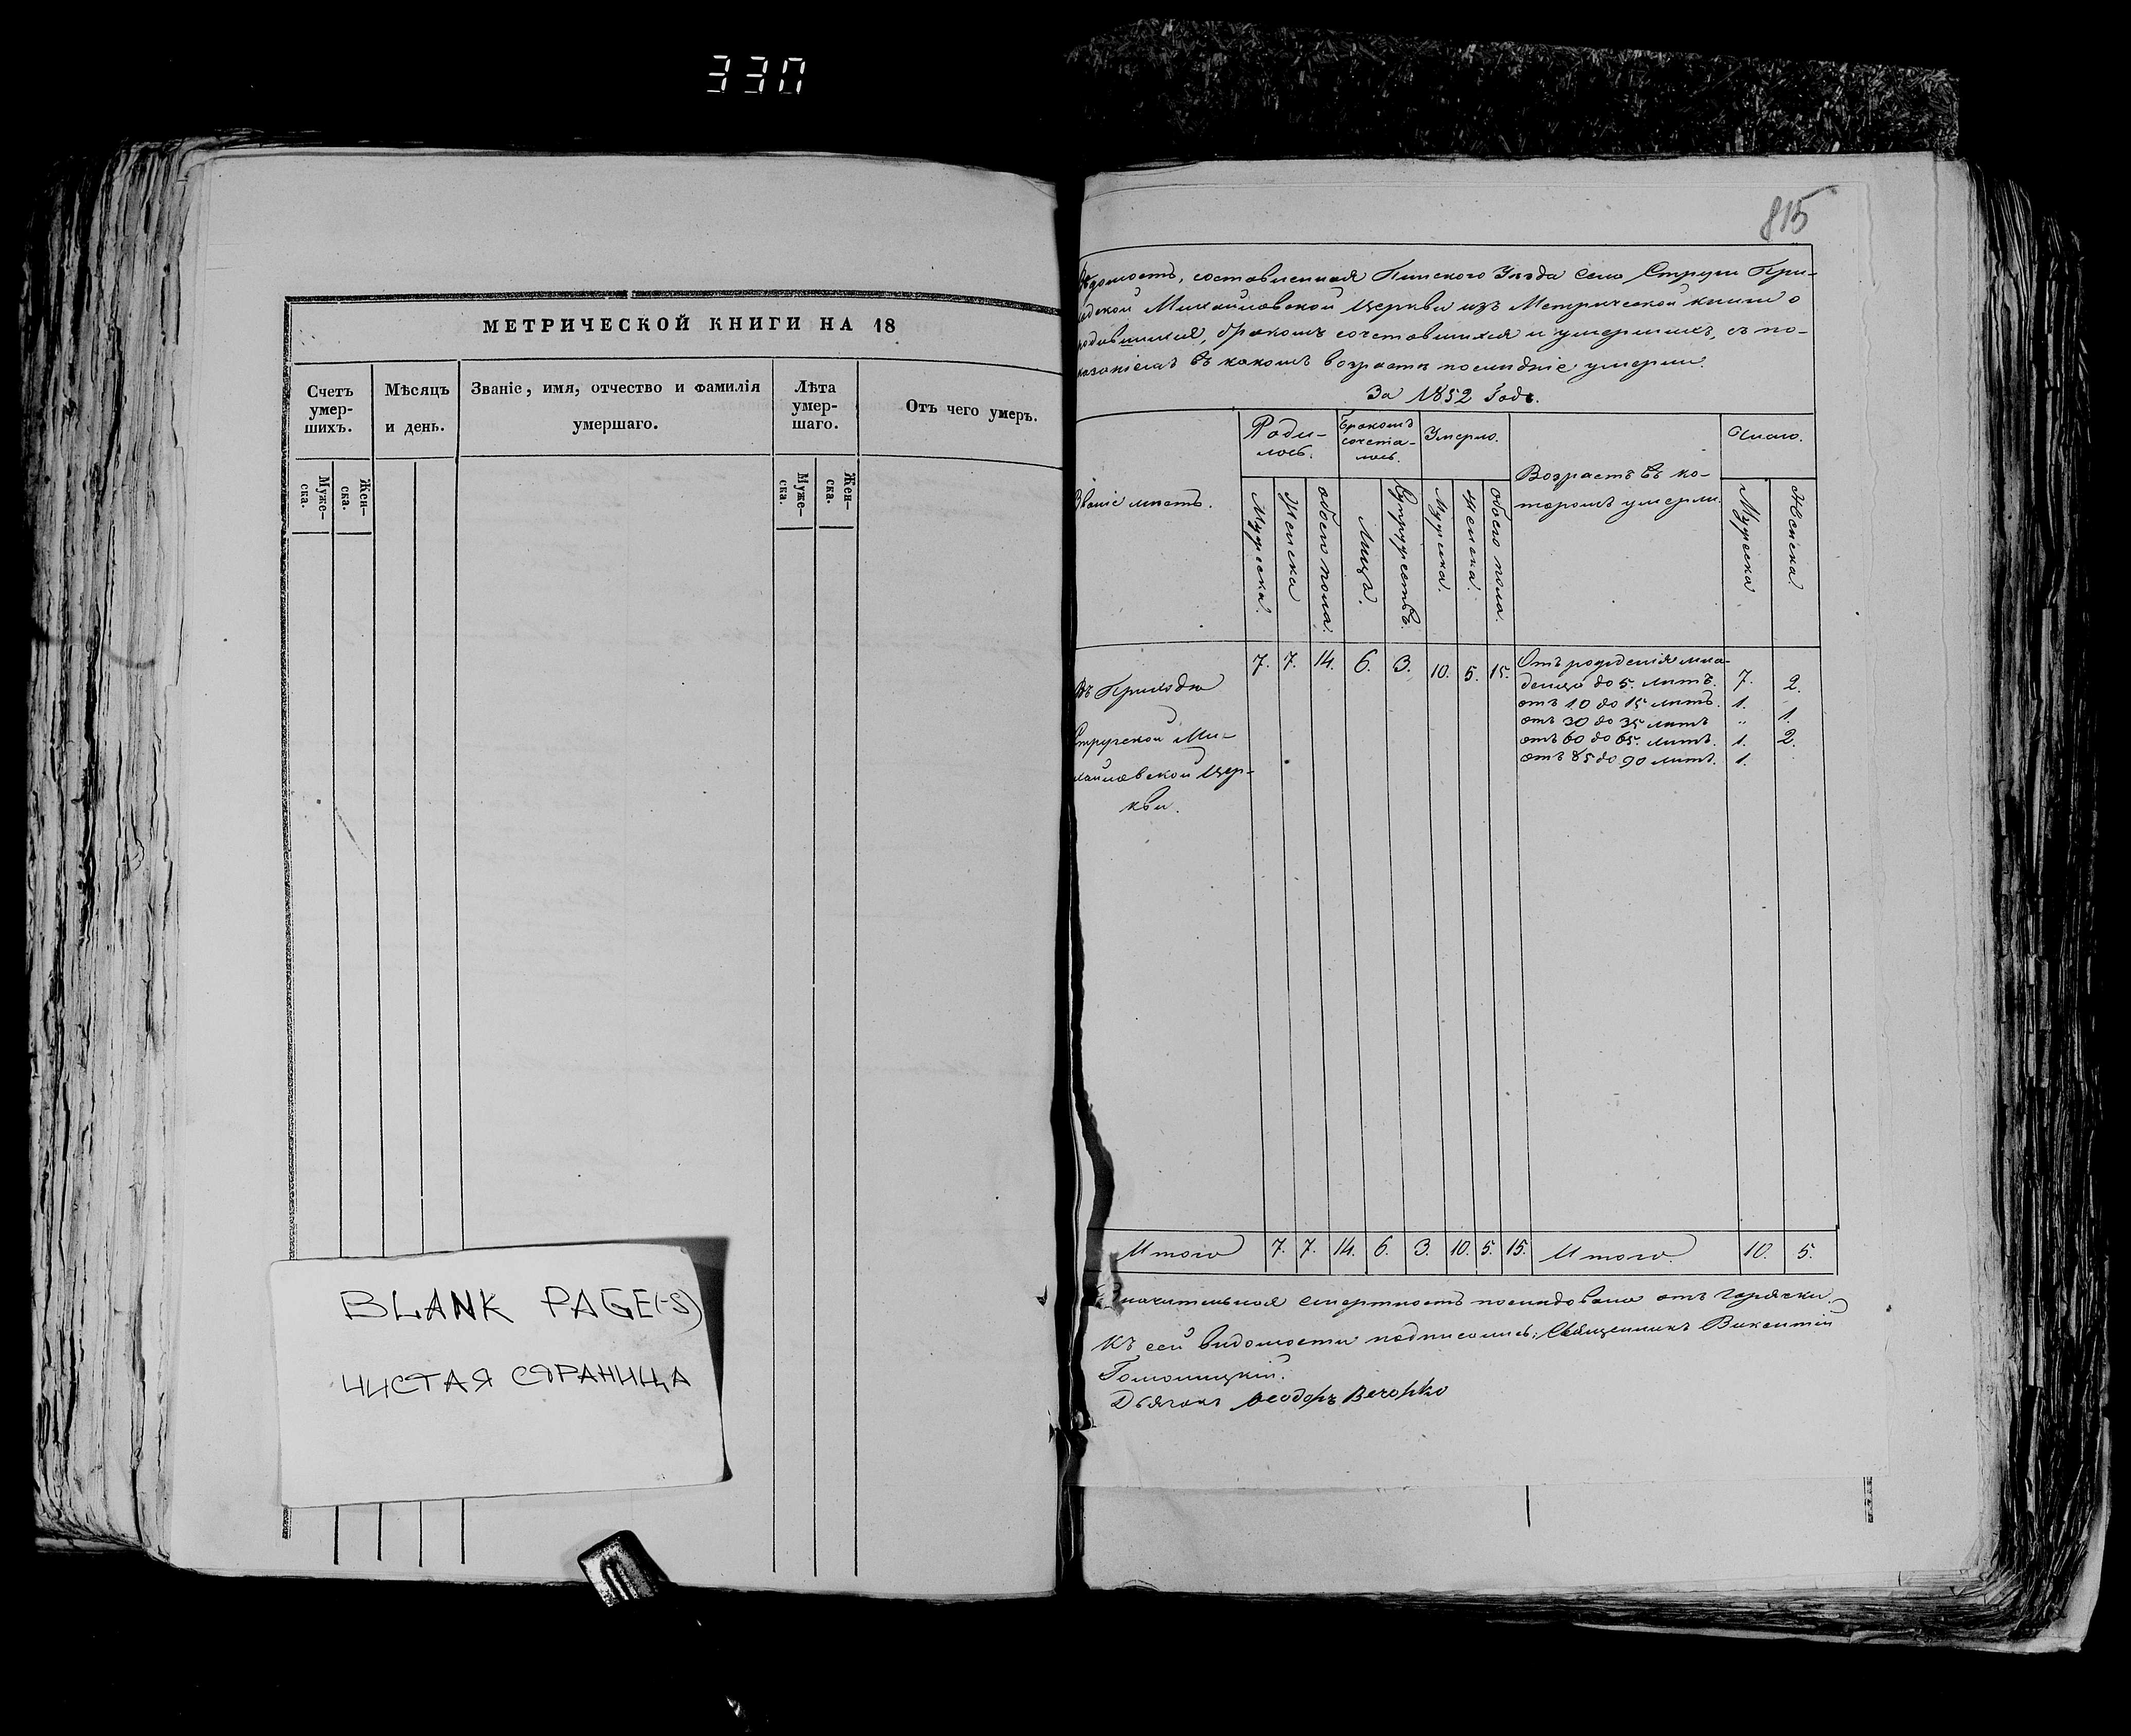 330
МЕТРИЧЕСКОЙ КНИГИ НА 18
Счетъ умер-шихъ.
Мѣсяцъ и день.
Званіе, имя, отчество и фамилія умершаго.
Лѣта умер-шаго.
Отъ чего умеръ.
Муже-ска.
Жен-ска.
Муже-ска.
Жен-ска.
BLANK PAGE(-S)
ЧИСТАЯ СТРАНИЦА
815
Вѣдомость, составленная Пинского Уѣзда села Струги При-
ходской Михайловской Церкви изъ Метрической книги о
родившихся, бракомъ сочетавшихся и умершихъ, съ по-
казаніемъ въ какомъ возрастѣ послѣдніе умерли.
За 1852 Годъ.
Званіе мѣстъ.
Роди-лось.
Бракомъ сочета-лось.
Умерло.
Возрастъ въ ко-торомъ умерли.
Число.
Мужеска.
Женска
обоего пола.
Лицъ.
Супружествъ.
Мужеска.
Женска.
обоего пола.
Мужеска
Женска
Въ Приходѣ
Стругской Ми-
хайловской Цер-
кви.
7. 7. 14. 6. 3. 10. 5. 15.
Отъ рожденія мла-
денца до 5. лѣтъ. 7. 2.
отъ 10 до 15 лѣтъ. 1.
отъ 30 до 35 лѣтъ " 1.
отъ 60 до 65. лѣтъ. 1. 2.
отъ 85 до 90 лѣтъ. 1.
Итого 7. 7. 14. 6. 3. 10. 5. 15. Итого. 10. 5.
Значительная смертность послѣдовала отъ горячки.
Къ сей вѣдомости подписались: Священникъ Викентій
Дьячокъ Ѳеодоръ Вечорко